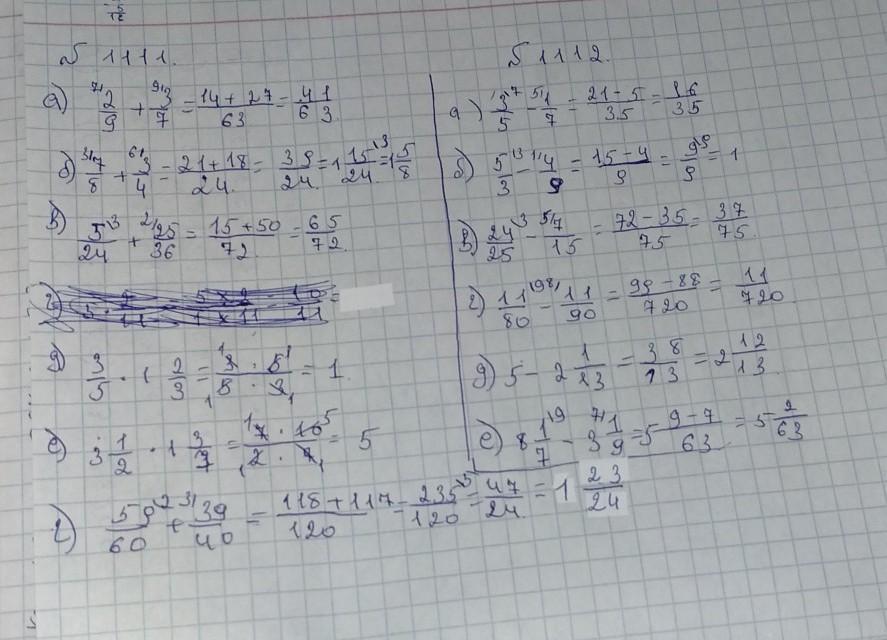 5/12
№ 1111.
а) 2/9 + 3/7 = (14 + 27)/63 = 41/63
б) 7/8 + 3/4 = (21 + 18)/24 = 39/24 = 1 15/24 = 1 5/8
в) 5/24 + 25/36 = (15 + 50)/72 = 65/72
д) 3/5 · 1 2/3 = (3 · 5)/(5 · 3) = 1
е) 3 1/2 · 1 3/7 = (7 · 10)/(2 · 7) = 5
г) 59/60 + 39/40 = (118 + 117)/120 = 235/120 = 47/24 = 1 23/24
№ 1112.
а) 3/5 - 1/7 = (21 - 5)/35 = 16/35
б) 5/3 - 4/9 = (15 - 4)/9 = 9/9 = 1
в) 24/25 - 7/15 = (72 - 35)/75 = 37/75
г) 11/80 - 11/90 = (99 - 88)/720 = 11/720
д) 5 - 2 1/13 = 38/13 = 2 12/13
е) 8 1/7 - 3 1/9 = 5 (9 - 7)/63 = 5 2/63